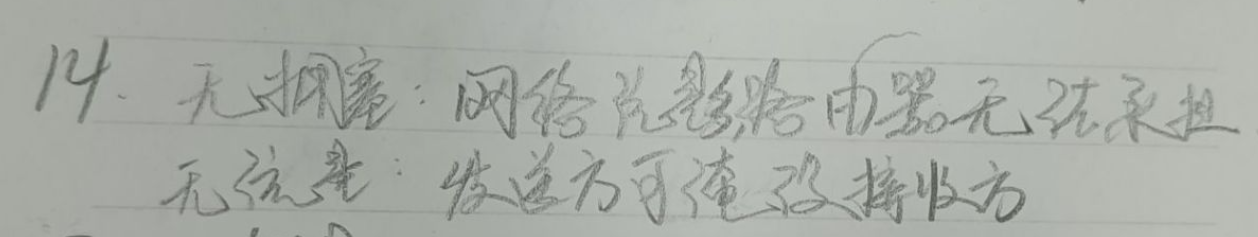 14. 无拥塞: 网络流量路由器无法承担
无流量: 发送方可淹没接收方